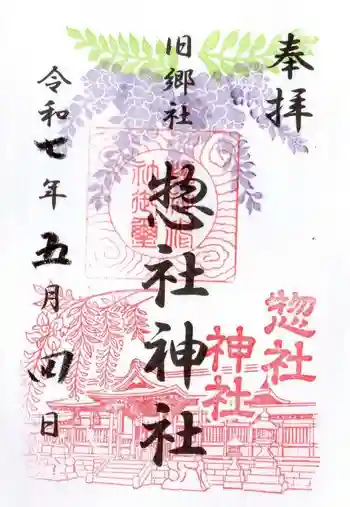 奉拝
旧郷社
惣社神社
令和七年五月四日
惣社
神社